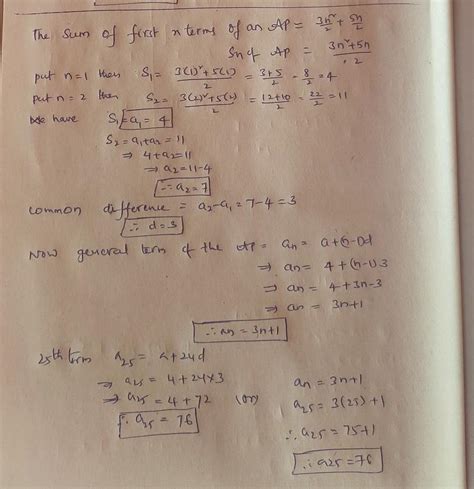 The Sum of first n terms of an AP = 3n²/2 + 5n/2
Sn of AP = 3n²+5n/2
put n=1 then S₁ = 3(1)²+5(1)/2 = 3+5/2 = 8/2 = 4
put n=2 then S₂ = 3(2)²+5(2)/2 = 12+10/2 = 22/2 = 11
We have S₁=a₁= 4
S₂ = a₁+a₂ = 11
⇒ 4+a₂ = 11
⇒ a₂ = 11-4
∴ a₂ = 7
common difference = a₂-a₁ = 7-4 = 3
∴ d = 3
Now general term of the AP = an = a+(n-1)d
⇒ an = 4+(n-1)3
⇒ an = 4+3n-3
⇒ an = 3n+1
∴ an = 3n+1
25th term a₂₅ = a+24d
⇒ a₂₅ = 4+24×3
⇒ a₂₅ = 4+72
∴ a₂₅ = 76
(or)
an = 3n+1
a₂₅ = 3(25)+1
∴ a₂₅ = 75+1
∴ a25 = 76